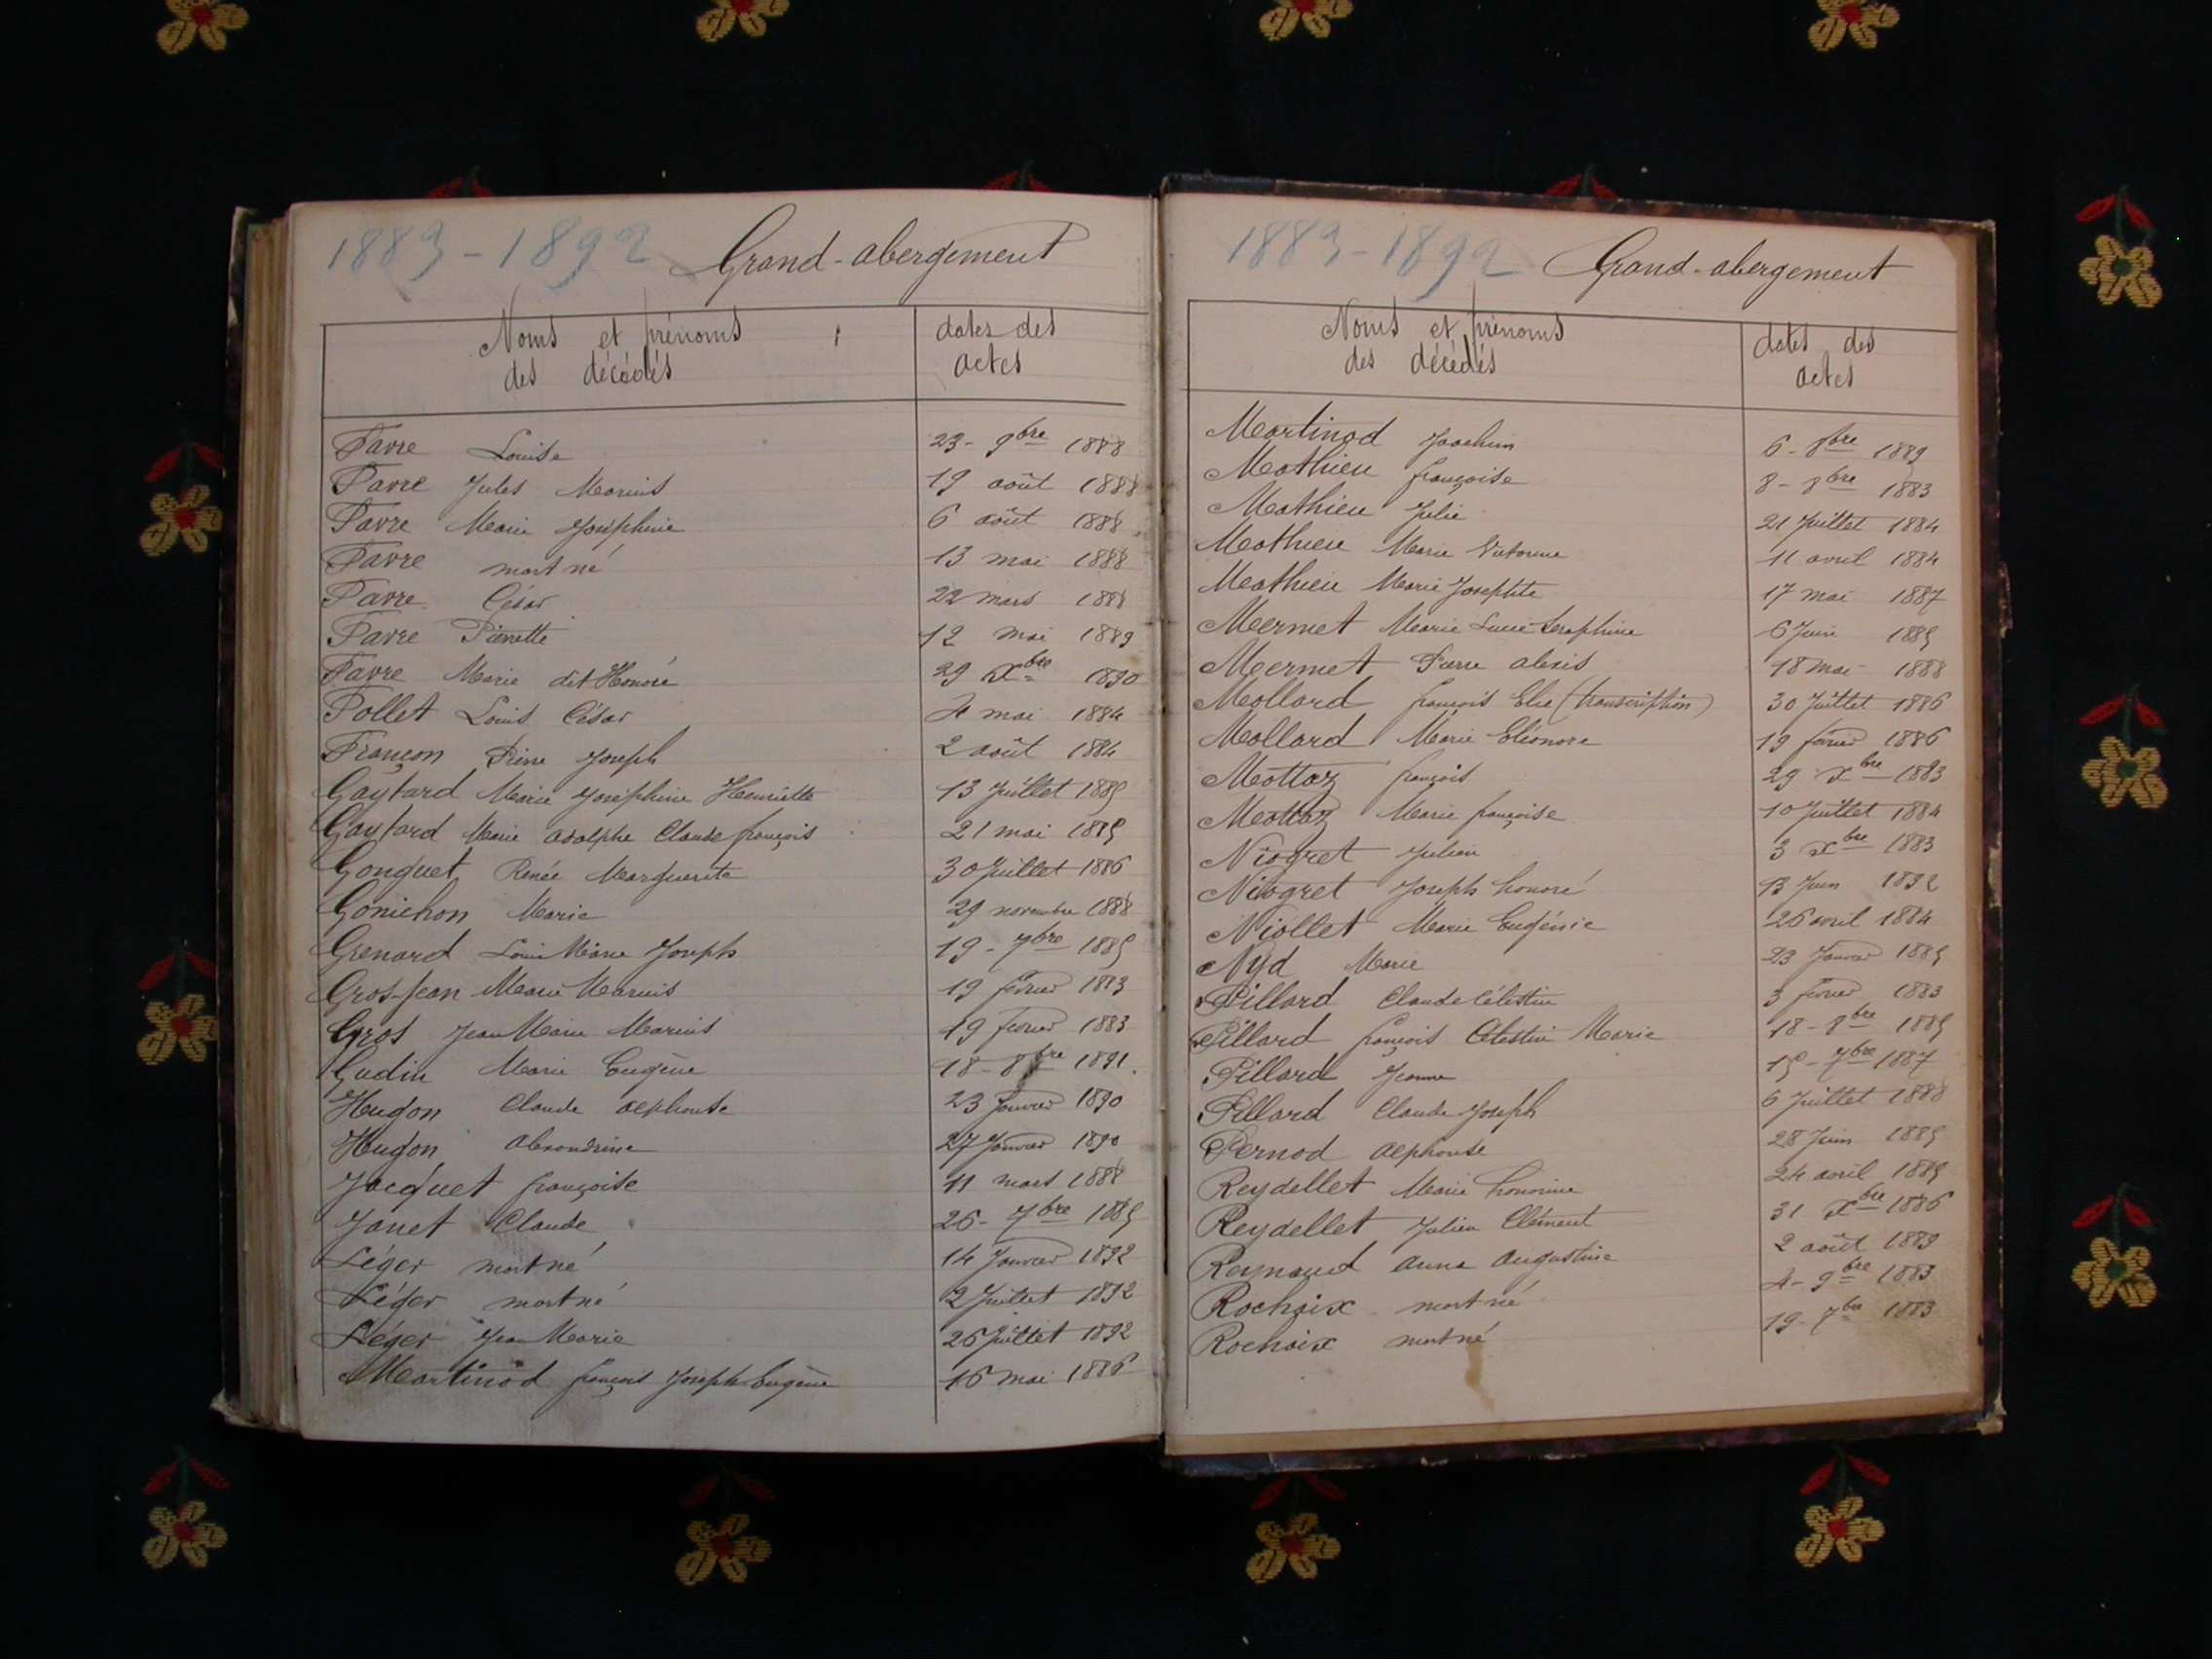 1883-1892 Grand-abergement
Noms et prénoms
des décédés
dates des
actes
Favre Louise 23-9bre 1888
Favre Jules Marius 19 août 1888
Favre Marie Joséphine 6 août 1888
Favre mort né 13 mai 1888
Favre César 22 mars 1888
Favre Pierrette 12 mai 1889
Favre Marie dit Honoré 29 Xbre 1890
Follet Louis César 4 mai 1884
Françon Pierre Joseph 2 août 1884
Gaytard Marie Joséphine Henriette 13 Juillet 1885
Gaytard Marie adolphe Claude françois 21 mai 1885
Gonguet Renée Marguerite 30 Juillet 1886
Gonichon Marie 29 novembre 1888
Grenard Louis Marie Joseph 19-7bre 1885
Gros-Jean Marie Marius 19 février 1883
Gros Jean Marie Marius 19 février 1883
Gudin Marie Eugène 18-8bre 1891.
Hugon Claude alphonse 23 Janvier 1890
Hugon alexandrine 27 Janvier 1890
Jacquet françoise 11 mars 1888
Janet Claude 26-7bre 1885
Léger mort né 14 Janvier 1892
Léger mort né 2 Juillet 1892
Léger Jean Marie 26 Juillet 1892
Martinod françois Joseph Eugène 16 mai 1886
1883-1892 Grand-abergement
Noms et prénoms
des décédés
dates des
actes
Martinod Joachim 6-8bre 1889
Mathieu françoise 8-8bre 1883
Mathieu Julie 21 Juillet 1884
Mathieu Marie Victorine 11 avril 1884
Mathieu Marie Josephte 17 mai 1887
Mermet Marie Lucie Seraphine 6 Juin 1885
Mermet Pierre alexis 18 mai 1888
Mollard françois Elie (transcription) 30 Juillet 1886
Mollard Marie Eléonore 19 février 1886
Mottaz françois 29 Xbre 1883
Mottaz Marie françoise 10 Juillet 1884
Niogret Julien 3 Xbre 1883
Niogret Joseph honoré 13 Juin 1892
Niollet Marie Eugénie 26 avril 1884
Nyd Marie 23 Janvier 1885
Pillard Claude Célestin 3 février 1883
Pillard françois Célestin Marie 18-8bre 1885
Pillard Jeanne 15-7bre 1887
Pillard Claude Joseph 6 Juillet 1888
Pernod alphonse 28 Juin 1885
Reydellet Marie honorine 24 avril 1885
Reydellet Julien Clément 31 Xbre 1886
Raynaud anna augustine 2 août 1889
Rochaix mort né 4-9bre 1883
Rochaix mort né 19-7bre 1883